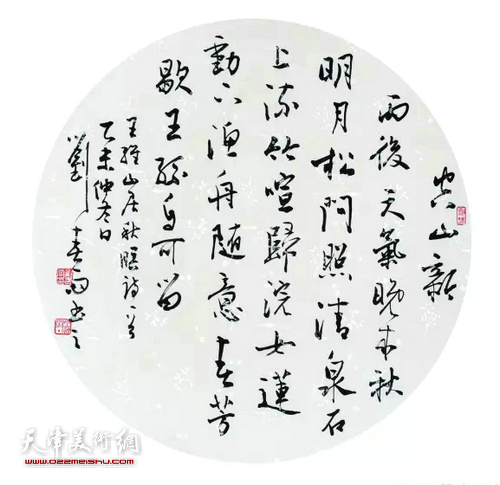 空山新
雨後天氣晚来秋
明月松間照清泉石
上流竹喧歸浣女蓮
動下漁舟随意春芳
歇王孫自可留
王維山居秋暝詩一首
乙未仲冬日
劉
天津美術網
www.022meishu.com